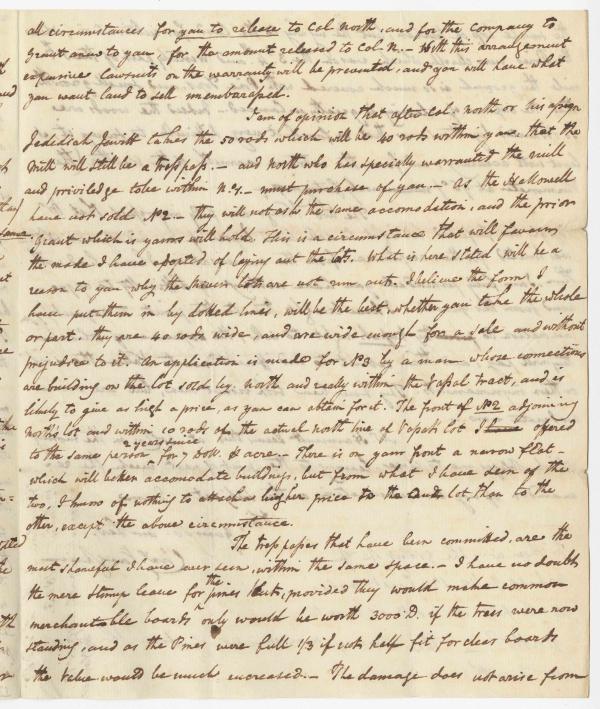 all circumstances for you to release to Col North, and for the company to
grant anew to you, for the amount released to Col N. - With this arrangement
expensive lawsuits on the warranty will be prevented, and you will have what
you want land to sell unembarassed.
I am of opinion that after Col. North or his assign
Jedediah Jewitt takes the 50 rods which will be 40 rods within you, that the
mill will still be a trespass. - and North who has specially warranted the mill
and priviledge to be within N. - must purchase of you. - As the Hallowell
have not sold No 2 - they will not ask the same accomodation, and the prior
grant which is yours will hold. This is a circumstance that will favour
the mode I have adopted of laying out the lots. What is here stated will be a
reason to you why the lots are not run out. I believe the form I
have put them in by dotted lines, will be the best, whether you take the whole
or part. they are 40 rods wide, and are wide enough for a sale and without
prejudice to it. An application is made for No 3 by a man whose connections
are building on the lot sold by North and really within the Vassal tract, and is
likely to give as high a price, as you can obtain for it. The front of No 2 adjoining
North's lot and within 10 rods of the actual north line of Vassals lot I offered
to the same person 2 years since for 7 doll. & acre. - There is on your front a narrow flat -
which will better accomodate buildings, but from what I have seen of the
two, I know of nothing to attach a higher price to the lot, than to the
other, except the above circumstance.
The trespasses that have been committed, are the
most shameful I have ever seen, within the same space. - I have no doubt
the mere stump leave for the pines Cut, provided they would make common
merchantable boards only would be worth 3000 D. if the trees were now
standing, and as the Pines were full 1/3 if not half fit for clear boards
the value would be much increased. - The damage does not arise from